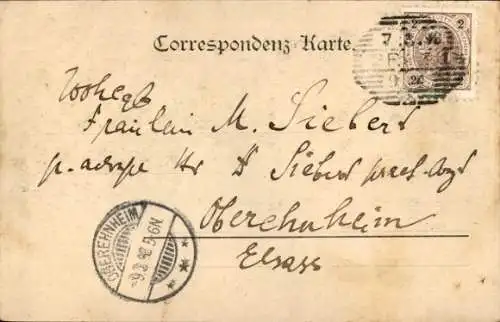 Correspondenz-Karte.
2
7. 3. 98
Wohlgb
Fräulein M. Siebert
p. adresse Hr D Siebert pract. Arzt
Oberehnheim
Elsass
OBEREHNHEIM
-9.3.98 5-6N